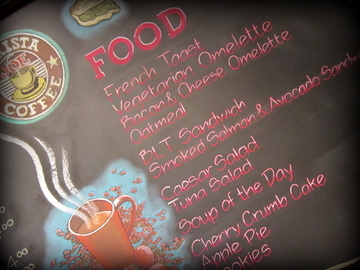 LISTA
JOE
COFFEE
FOOD
French Toast
Vegetarian Omelette
Bacon & Cheese Omelette
Oatmeal
BLT Sandwich
Smoked Salmon & Avocado Sandw
Caesar Salad
Tuna Salad
Soup of the Day
Cherry Crumb Cake
Apple Pie
ookies